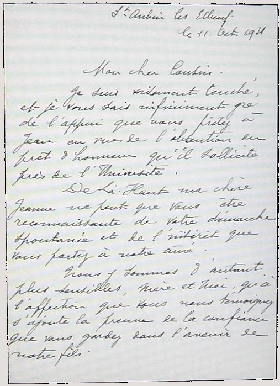 St Aubin les Elbeuf
le 11 Oct. 1921
Mon cher Cousin.
Je suis vivement touché,
et je vous sais infiniment gré
de l'appui que vous prêtez à
Jean en vue de l'obtention du
prêt d'honneur qu'il sollicite
près de l'Université.
De Là-Haut ma chère
Jeanne ne peut que vous être
reconnaissante de votre démarche
spontanée et de l'intérêt que
vous portez à notre aîné.
Nous y sommes d'autant
plus sensibles, Mère et moi, qu'à
l'affection que vous nous témoignez
s'ajoute la preuve de la confiance
que vous gardez dans l'avenir de
notre fils.